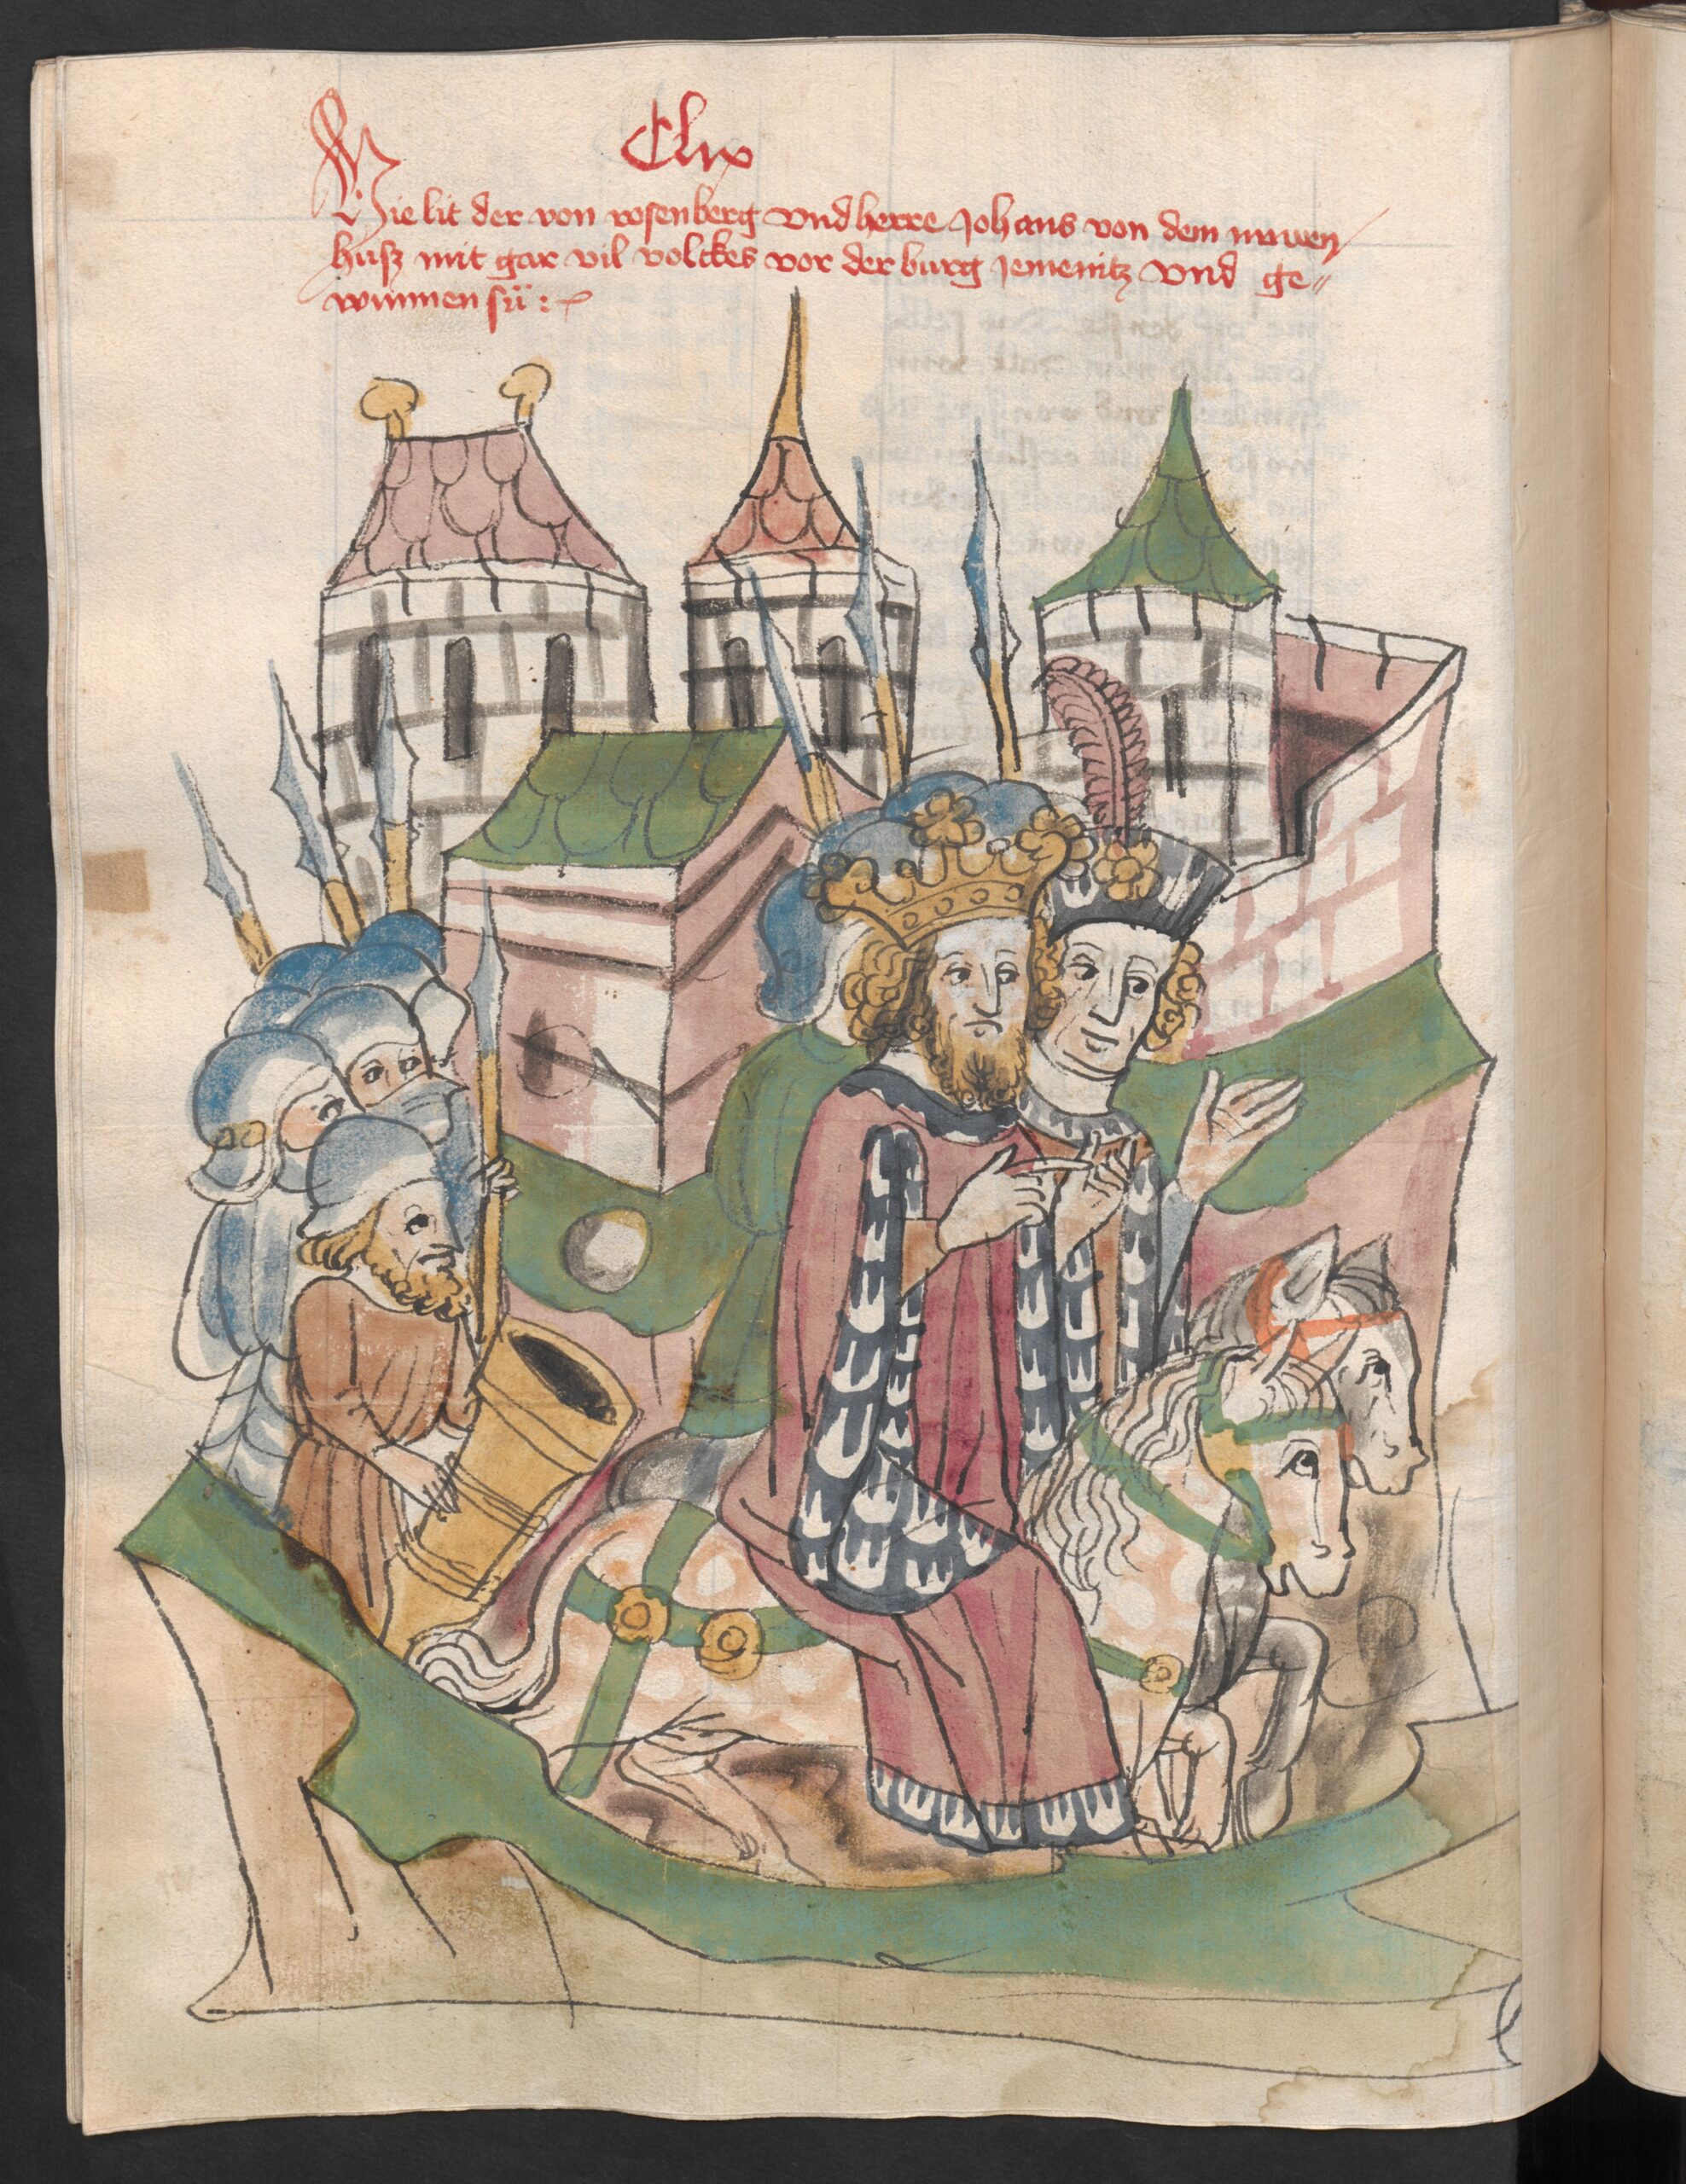 Clix
Hie lit der von rosenberg vnd herre Johans von dem nuwen
husz mit gar vil volckes vor der burg Jemenitz vnd ge„
winnen sü :~